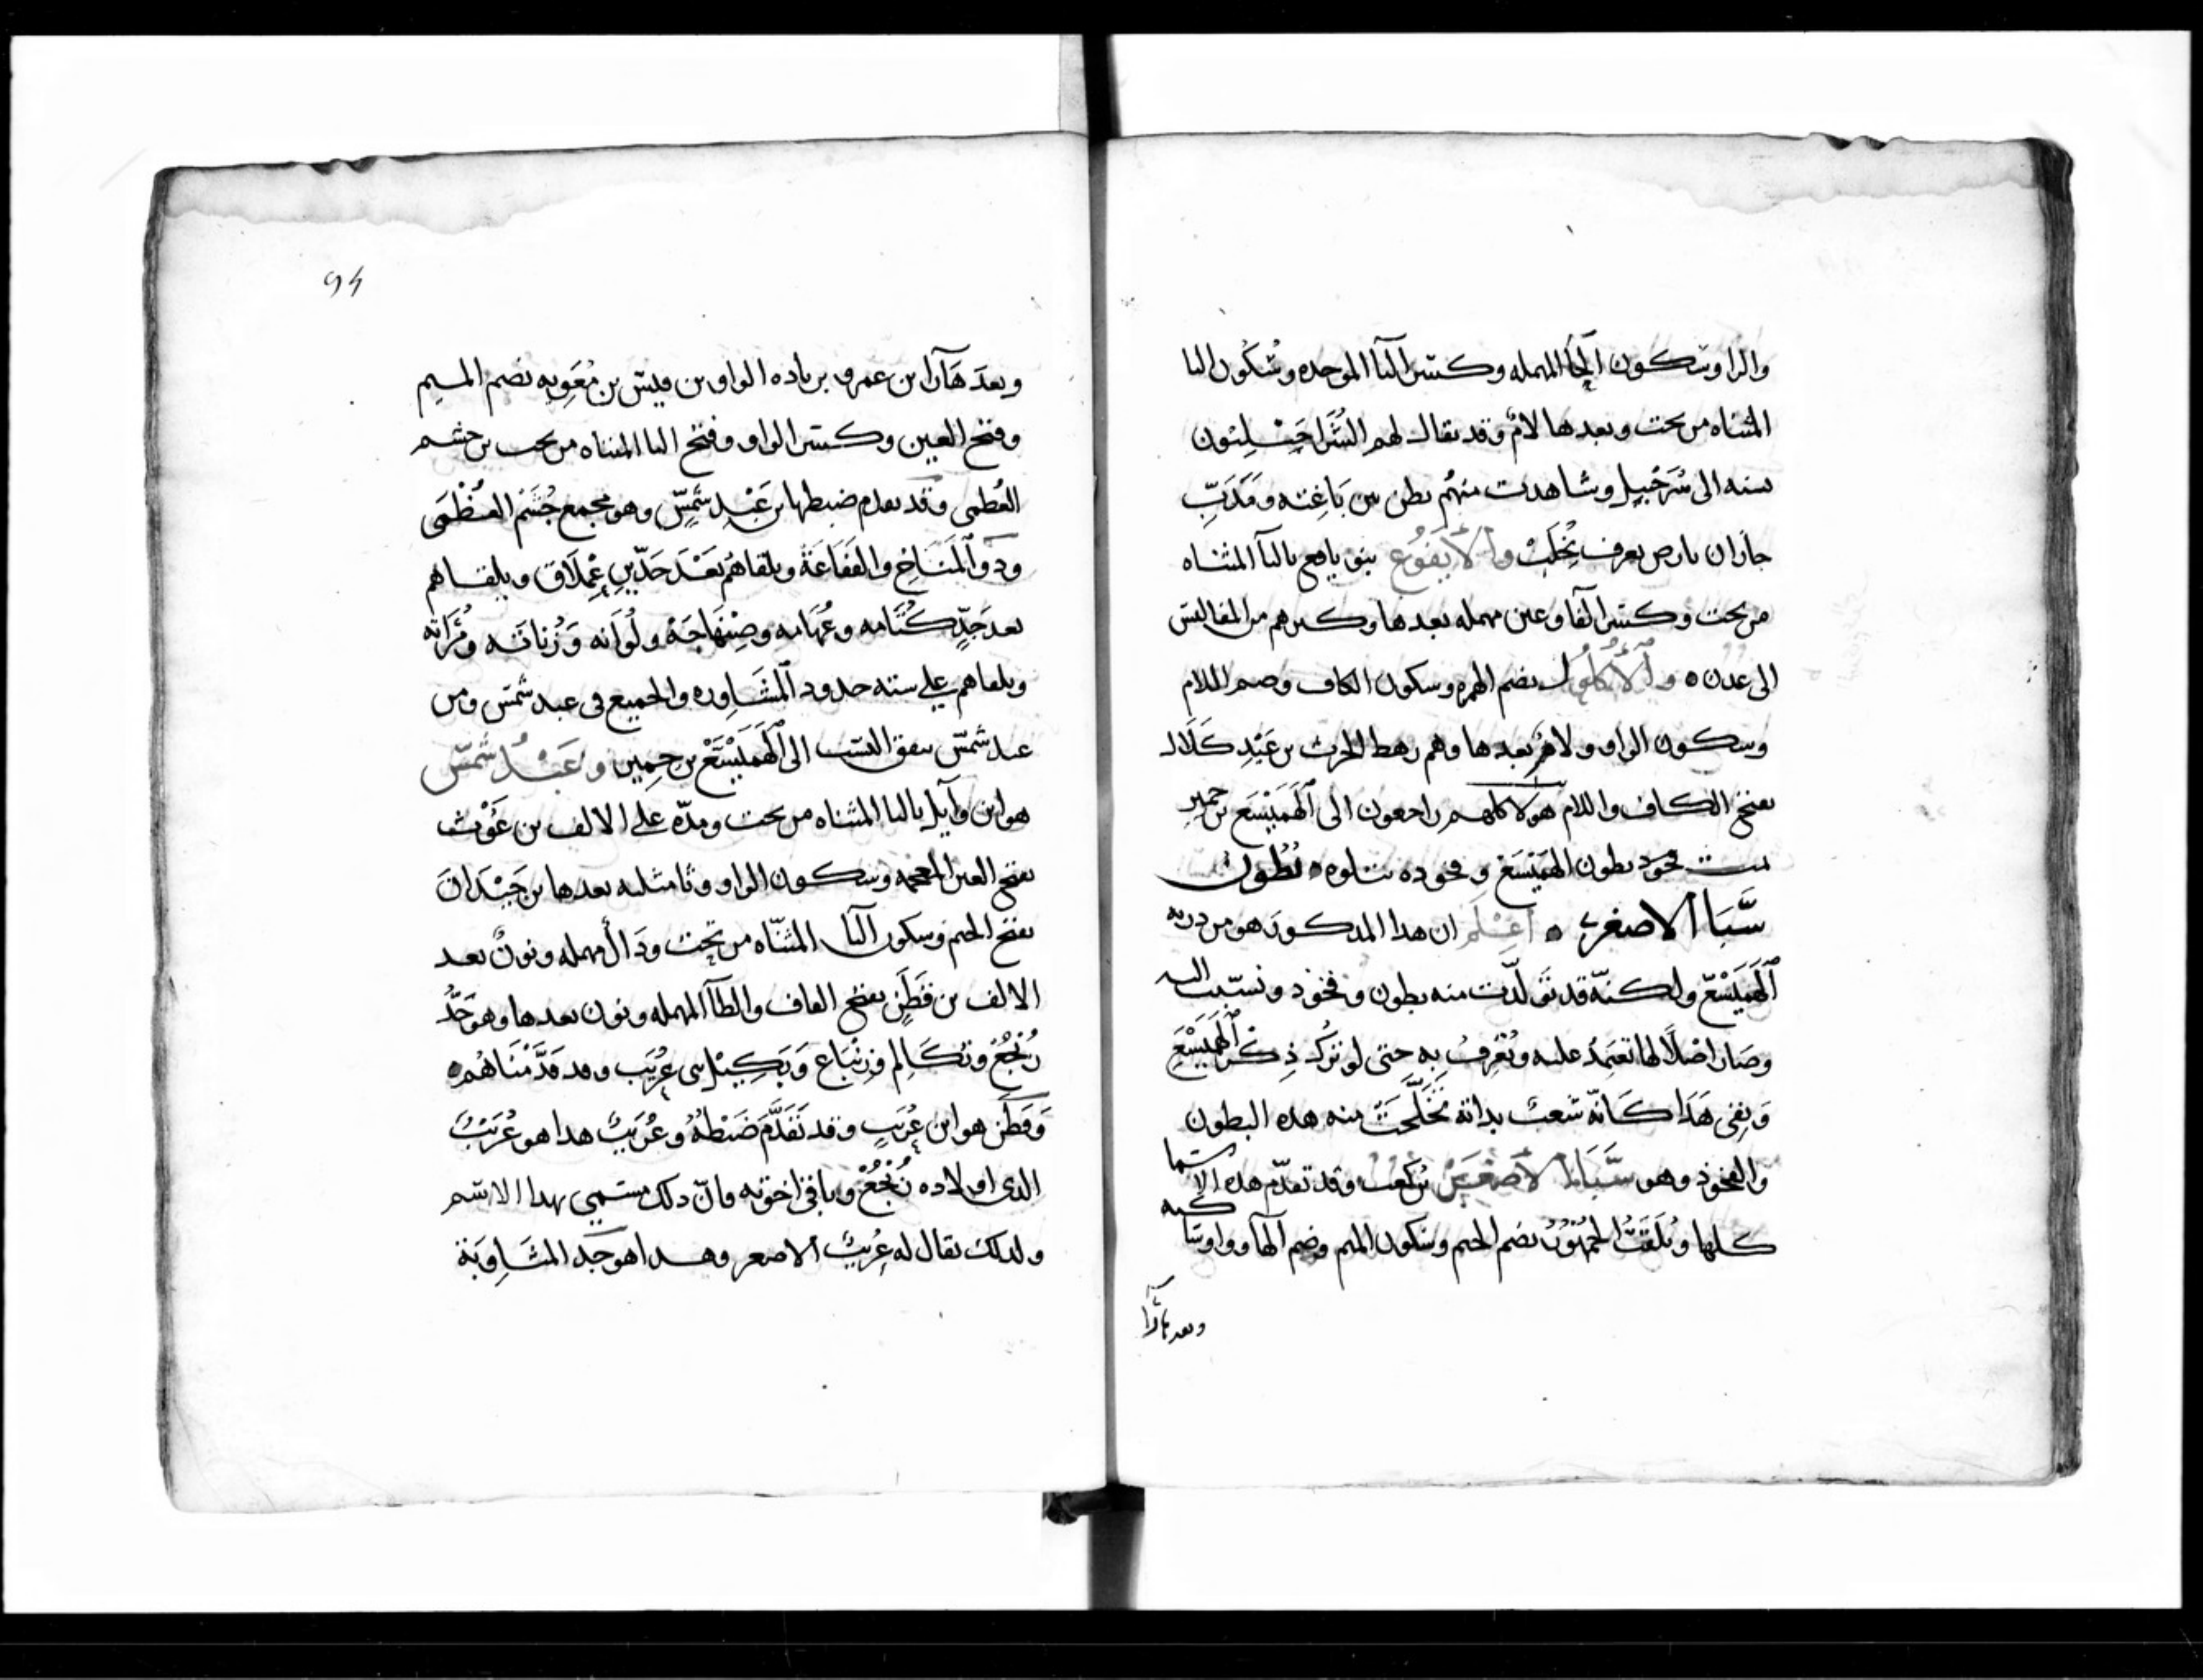 والرا وسكون الحا المهمله وكسر البا الموحده وسكون اليا
المثناه من تحت وبعدها لام وقد يقال لهم الشراحيليون
نسبه الى شرحبيل وشاهدت منهم بطن بين باغته ومدرب
جازان بارض يعرف بخلب والايفوع بنو يافع باليا المثناه
من تحت وكسر الفا وعين مهمله بعدها وكبرهم من المفاليس
الى عدن ٥ والاكلول بضم الهمزه وسكون الكاف وضم اللام
وسكون الواو ولام بعدها وهم رهط الحرث بن عبد كلال
بفتح الكاف واللام هولا كلهم راجعون الى الهميسع بن حمير
تمت فخود بطون الهميسع وفخوده يتلوه ٥ بطون
سبا الاصغر ٥ اعلم ان هدا المدكور هو من دريه
الهميسع ولكنه قد تولدت منه بطون وفخود ونسبت اليه
وصار اصلا لها تعتمد عليه وتعرف به حتى لو ترك ذكر الهميسع
وبقي هذا كانه شعب بداته تخلجت منه هده البطون
والفخوذ وهو سبا الاصغر بن كعب وقد تقدم هده الاسما
كلها وتلقب الجمهور بضم الجيم وسكون الميم وضم الها وواو ساكنه
وبعدها را
94
وبعدها را بن عمرو بن باده الواو بن قيس بن معويه بضم الميم
وفتح العين وكسر الواو وفتح اليا المثناه من تحت بن جشم
العظمى وقد تقدم ضبطها بن عبد شمس وهو مجمع جشم العظمى
ودو المناخ والقفاعة ويلقاهم بعد حدين عملاق ويلقاهم
بعد جد كتامه وعهامه وصنهاجة ولواته وزناته ومزاته
ويلقاهم على سته حدود المشاوره والجميع في عبد شمس ومن
عبد شمس يتفق النسب الى الهميسع بن حمير وعبد شمس
هو ابن وايل باليا المثناه من تحت ومدة على الالف بن غوث
بفتح الغين المعجمه وسكون الواو وثا مثلثه بعدها بن جيدان
بفتح الجيم وسكون اليا المثناه من تحت ودال مهمله ونون بعد
الالف بن قطن بفتح القاف والطا المهمله ونون بعدها وهو جد
زنجع وتكالم وزنباع وبكيل بني عريب وقد قدمناهم ٥
وقطن هو ابن عريب وقد تقدم ضبطه وعريب هدا هو عريب
الدي اولاده زنجع وباقي اخوته فان دلك مسمى بهدا الاسم
ولدلك يقال له عريب الاصغر وهدا هو جد المشاوبة